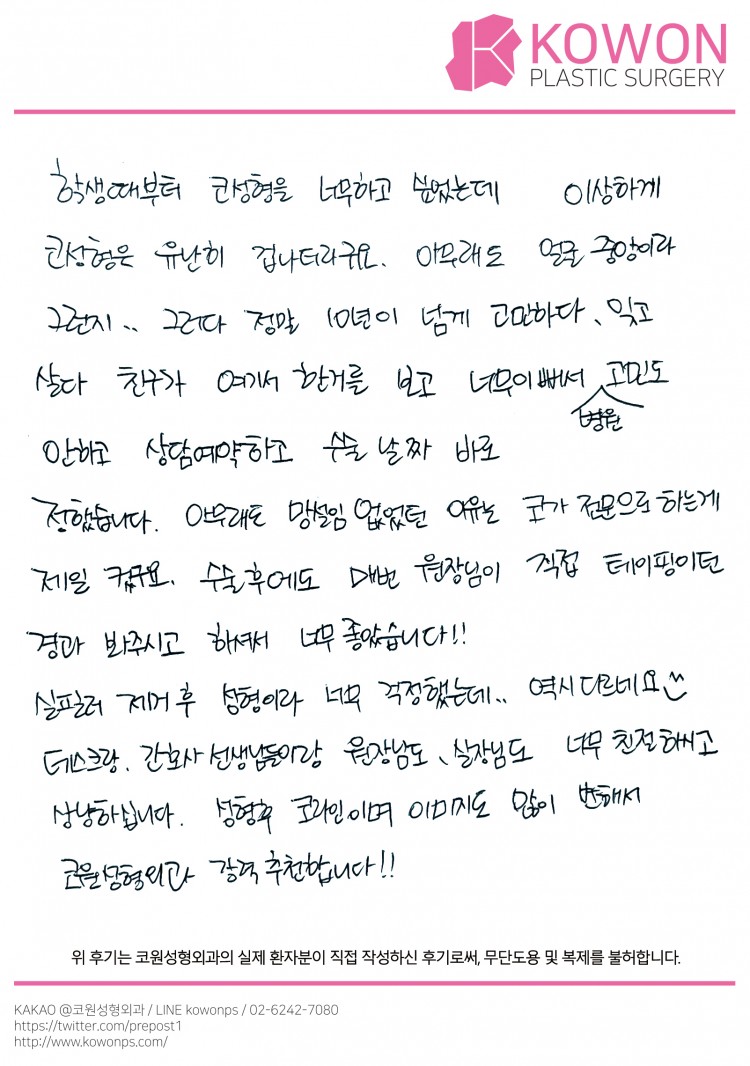 KOWON
PLASTIC SURGERY
학생때부터 코성형을 너무하고 싶었는데 이상하게
코성형은 유난히 겁나더라구요. 아무래도 얼굴 중앙이라
그런지.. 그러다 정말 10년이 넘게 고민하다, 잊고
살다 친구가 여기서 한거를 보고 너무이뻐서 고민도
병원
안하고 상담예약하고 수술 날짜 바로
정했습니다. 아무래도 망설임 없었던 이유는 코가 전문으로 하는게
제일 컸구요. 수술후에도 매번 원장님이 직접 테이핑이던
경과 봐주시고 하셔서 너무 좋았습니다!!
실필러 제거 후 성형이라 너무 걱정했는데.. 역시 다르네요
데스크랑, 간호사 선생님들이랑 원장님도, 실장님도 너무 친절하시고
상냥하십니다. 성형후 코라인이며 이미지도 많이 변해서
코원성형외과 강력 추천합니다!!
위 후기는 코원성형외과의 실제 환자분이 직접 작성하신 후기로써, 무단도용 및 복제를 불허합니다.
KAKAO @코원성형외과 / LINE kowonps / 02-6242-7080
https://twitter.com/prepost1
http://www.kowonps.com/